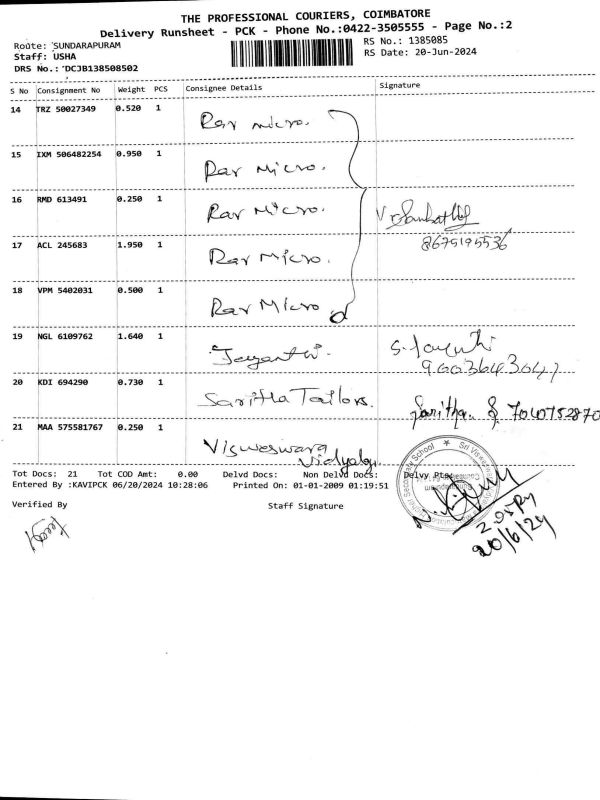 THE PROFESSIONAL COURIERS, COIMBATORE
Delivery Runsheet - PCK - Phone No.:0422-3505555 - Page No.:2
Route: SUNDARAPURAM RS No.: 1385085
Staff: USHA RS Date: 20-Jun-2024
DRS No.: DCJB138508502
S No Consignment No Weight PCS Consignee Details Signature
14 TRZ 50027349 0.520 1 Rav micro.
15 IXM 506482254 0.950 1 Rav Micro.
16 RMD 613491 0.250 1 Rav Micro.
8675195536
17 ACL 245683 1.950 1 Rav Micro.
18 VPM 5402031 0.500 1 Rav Micro
19 NGL 6109762 1.640 1 Jayanthi. S. Jayanthi
9003643047
20 KDI 694290 0.730 1 Saritha Tailors. Saritha. S. 7010752870
21 MAA 575581767 0.250 1 Visweswara
Vidyalaya
Tot Docs: 21 Tot COD Amt: 0.00 Delvd Docs: Non Delvd Docs: Delvy Ptge
Entered By :KAVIPCK 06/20/2024 10:28:06 Printed On: 01-01-2009 01:19:51
Verified By Staff Signature
2.05 Pm
20/6/24